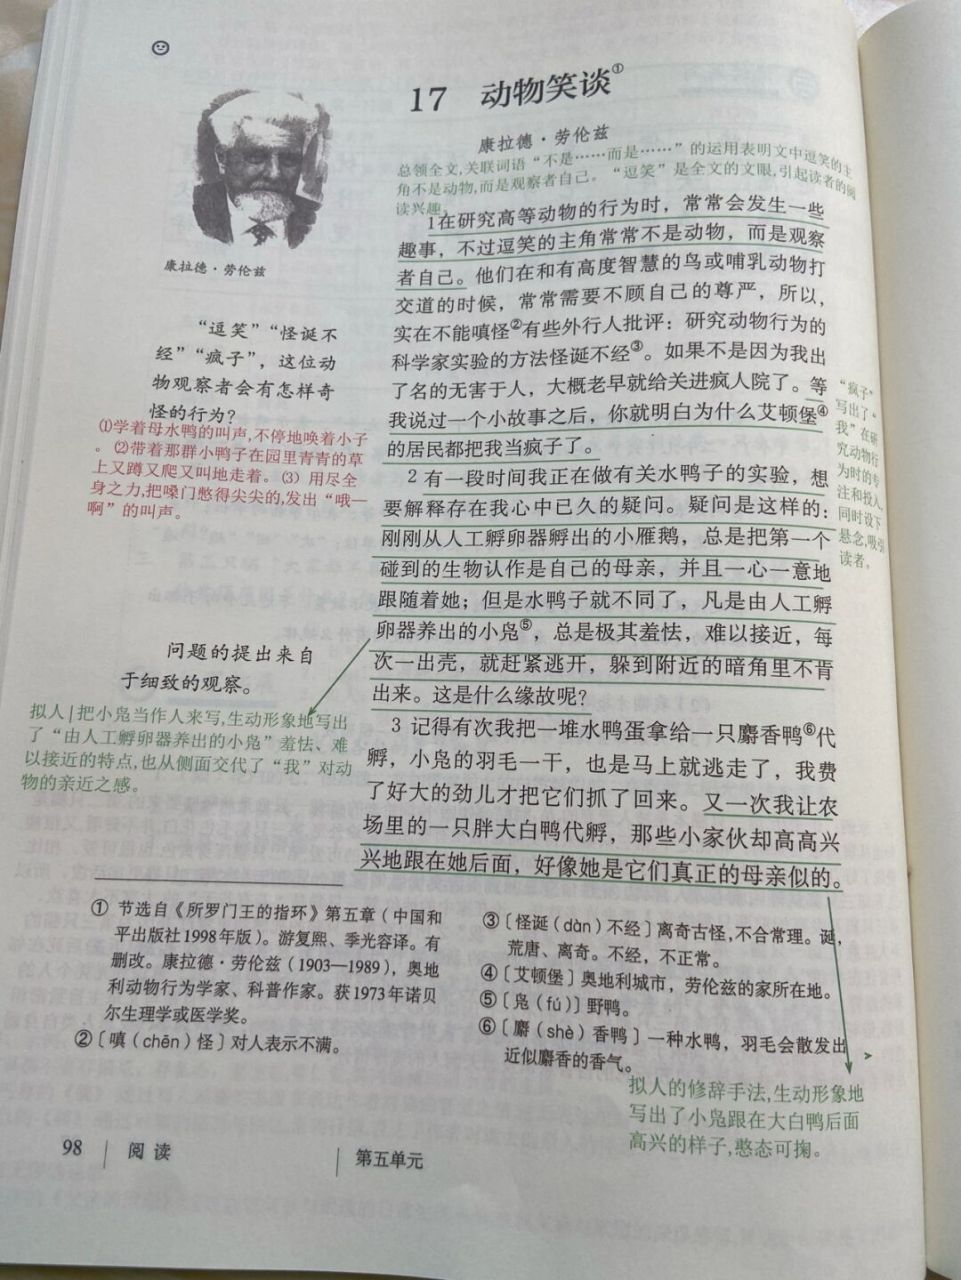 17 动物笑谈①
康拉德·劳伦兹
总领全文,关联词语“不是……而是……”的运用表明文中逗笑的主
角不是动物,而是观察者自己。“逗笑”是全文的文眼,引起读者的阅
读兴趣。
1在研究高等动物的行为时，常常会发生一些
趣事，不过逗笑的主角常常不是动物，而是观察
者自己。他们在和有高度智慧的鸟或哺乳动物打
交道的时候，常常需要不顾自己的尊严，所以，
实在不能嗔怪②有些外行人批评：研究动物行为的
科学家实验的方法怪诞不经③。如果不是因为我出
了名的无害于人，大概老早就给关进疯人院了。等
我说过一个小故事之后，你就明白为什么艾顿堡④
的居民都把我当疯子了。
2 有一段时间我正在做有关水鸭子的实验，想
要解释存在我心中已久的疑问。疑问是这样的：
刚刚从人工孵卵器孵出的小雁鹅，总是把第一个
碰到的生物认作是自己的母亲，并且一心一意地
跟随着她；但是水鸭子就不同了，凡是由人工孵
卵器养出的小凫⑤，总是极其羞怯，难以接近，每
次一出壳，就赶紧逃开，躲到附近的暗角里不肯
出来。这是什么缘故呢？
3 记得有次我把一堆水鸭蛋拿给一只麝香鸭⑥代
孵，小凫的羽毛一干，也是马上就逃走了，我费
了好大的劲儿才把它们抓了回来。又一次我让农
场里的一只胖大白鸭代孵，那些小家伙却高高兴
兴地跟在她后面，好像她是它们真正的母亲似的。
康拉德·劳伦兹
“逗笑”“怪诞不
经”“疯子”，这位动
物观察者会有怎样奇
怪的行为？
⑴学着母水鸭的叫声,不停地唤着小子
。⑵带着那群小鸭子在园里青青的草
上又蹲又爬又叫地走着。⑶ 用尽全
身之力,把嗓门憋得尖尖的,发出“哦—
啊”的叫声。
问题的提出来自
于细致的观察。
拟人|把小凫当作人来写,生动形象地写出
了“由人工孵卵器养出的小凫”羞怯、难
以接近的特点,也从侧面交代了“我”对动
物的亲近之感。
“疯子”
写出了“
我”在研
究动物行
为时的专
注和投入,
同时设下
悬念,吸引
读者。
① 节选自《所罗门王的指环》第五章（中国和
平出版社1998年版）。游复熙、季光容译。有
删改。康拉德·劳伦兹（1903—1989），奥地
利动物行为学家、科普作家。获1973年诺贝
尔生理学或医学奖。
②〔嗔（chēn）怪〕对人表示不满。
③〔怪诞（dàn）不经〕离奇古怪,不合常理。诞,
荒唐、离奇。不经，不正常。
④〔艾顿堡〕奥地利城市，劳伦兹的家所在地。
⑤〔凫（fú）〕野鸭。
⑥〔麝（shè）香鸭〕一种水鸭，羽毛会散发出
近似麝香的香气。
拟人的修辞手法,生动形象地
写出了小凫跟在大白鸭后面
高兴的样子,憨态可掬。
98 阅读 第五单元